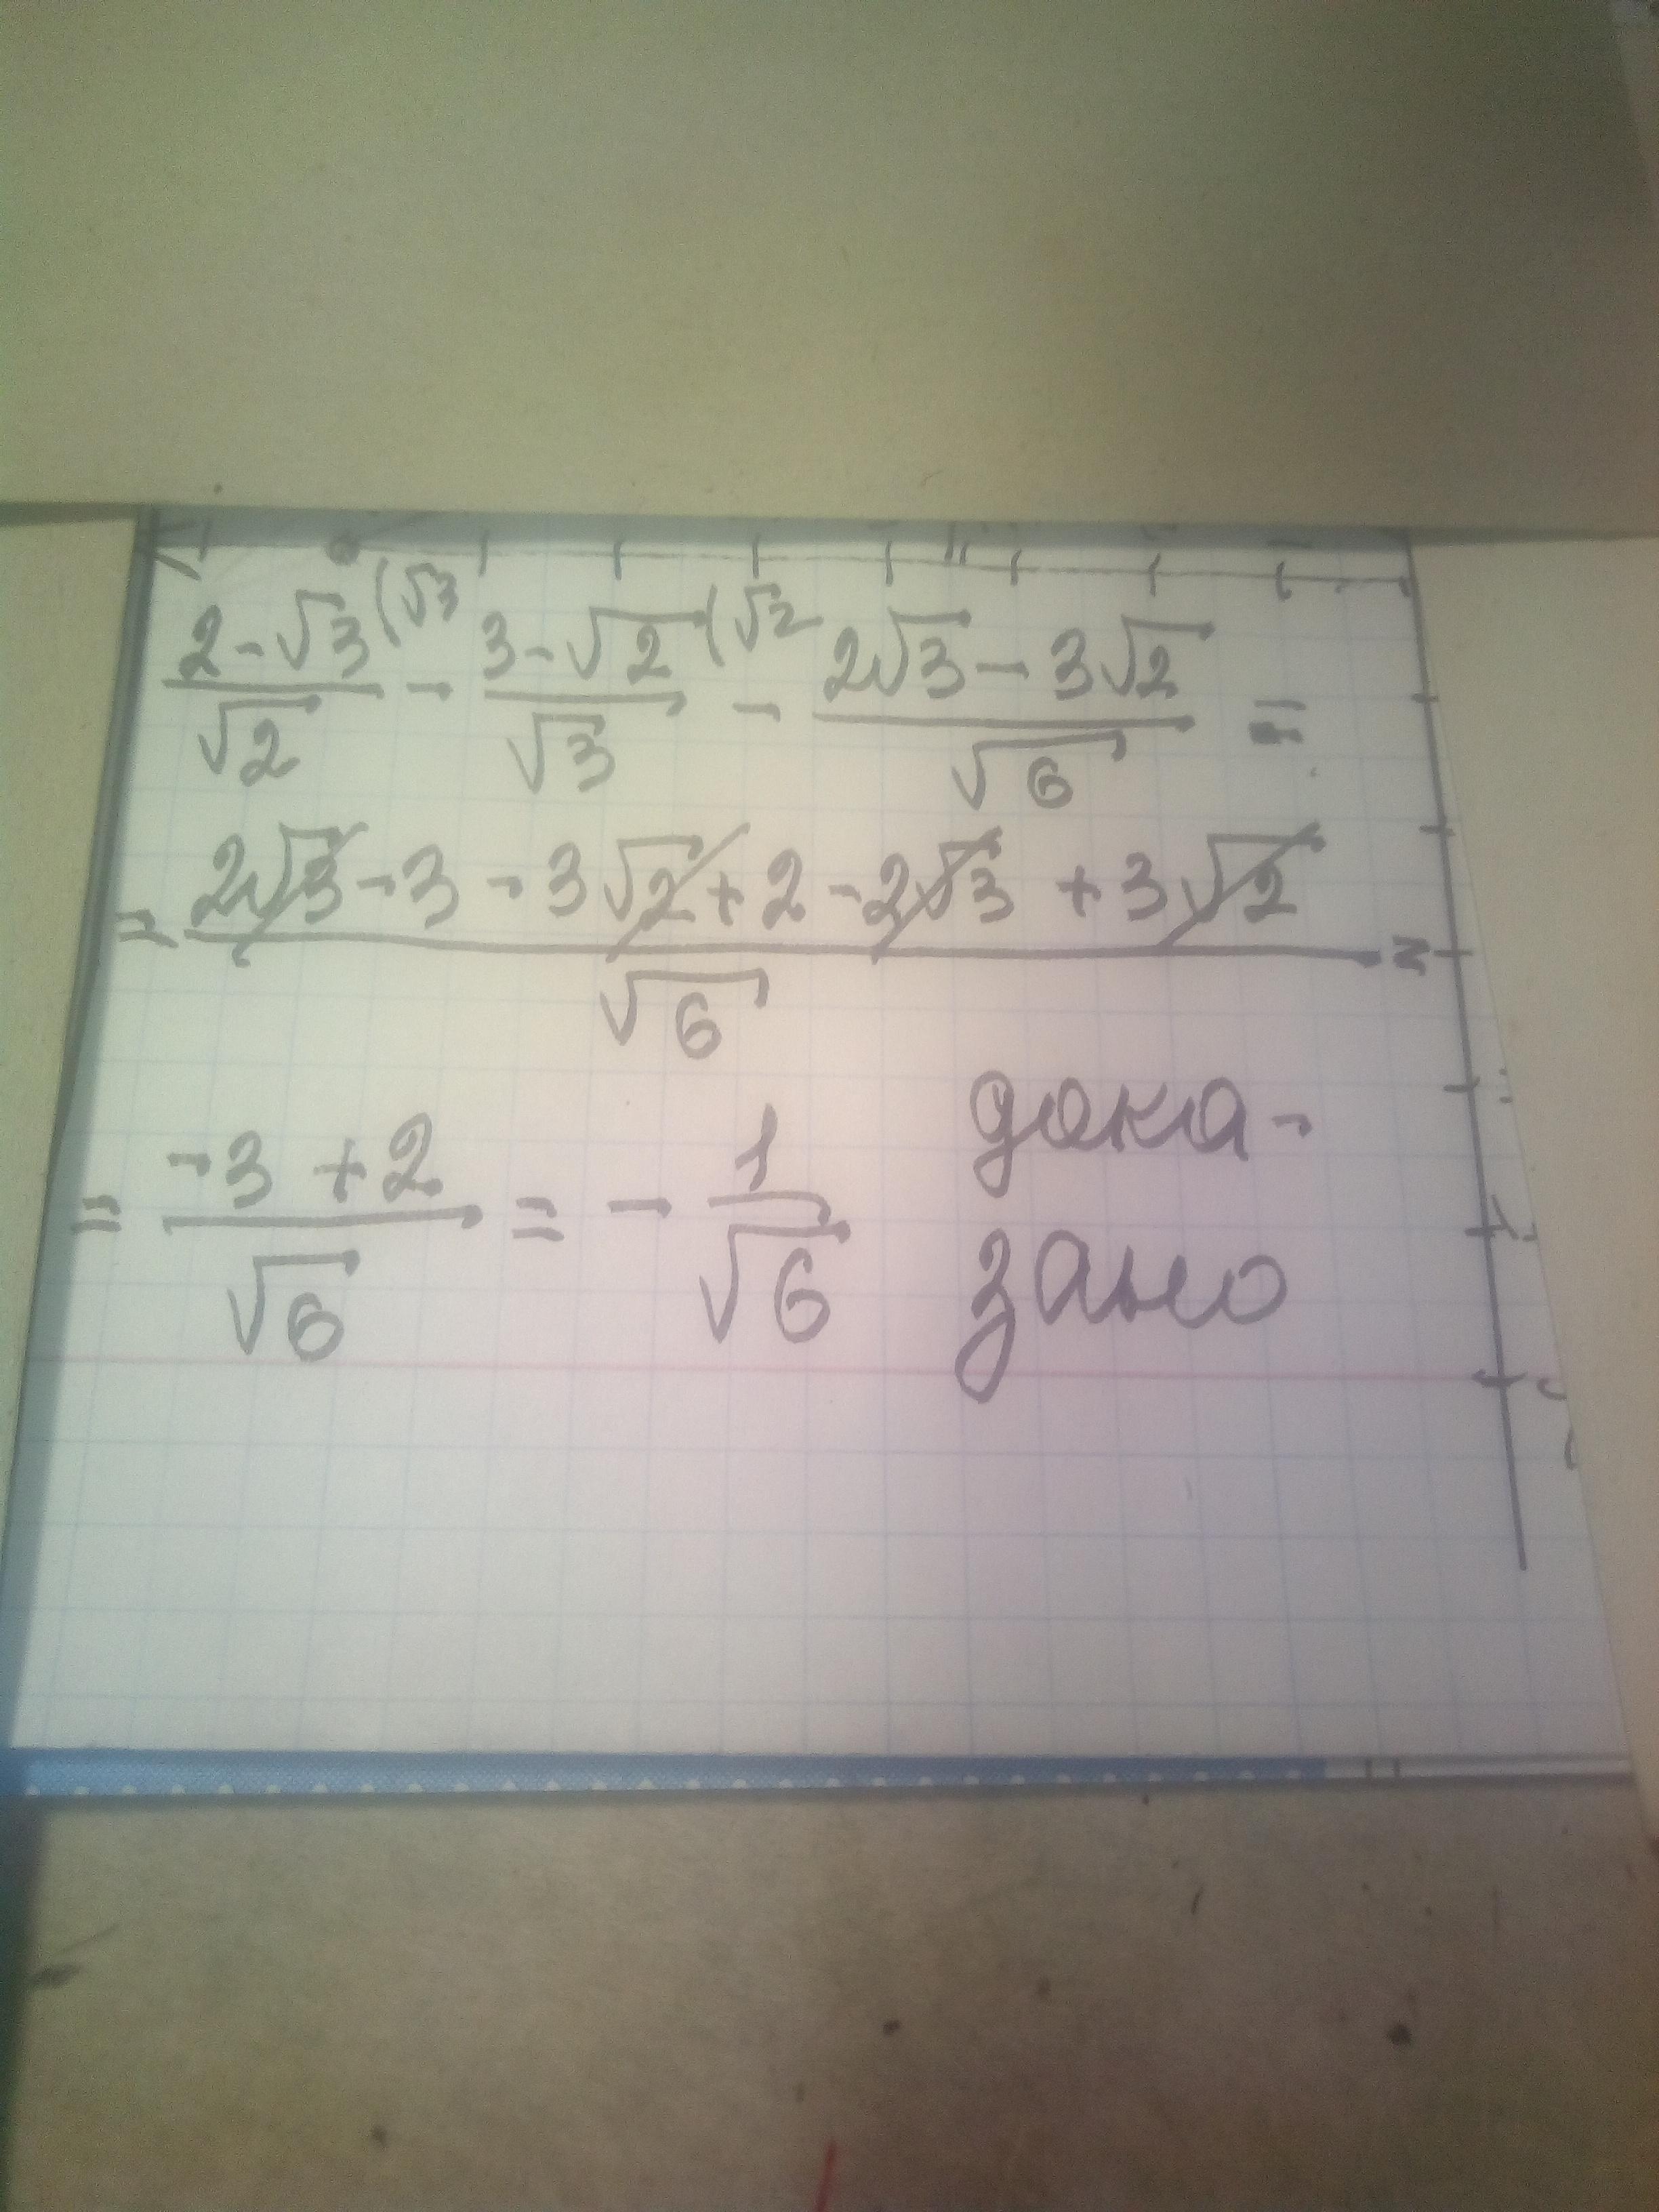 (2-√3)/√2 (√3 - (3-√2)/√3 (√2 - (2√3-3√2)/√6 =
= (2√3-3-3√2+2-2√3+3√2)/√6 =
= (-3+2)/√6 = -1/√6 дока-
зано